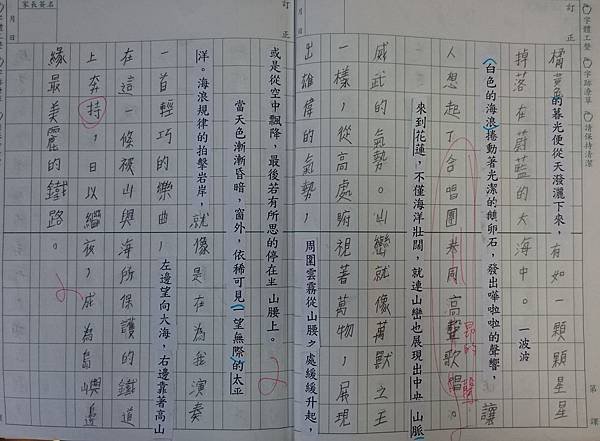 橘黃色的暮光便從天潑灑下來，有如一顆顆星星
掉落在蔚藍的大海中。一波波
白色的海浪捲動著光潔的鵝卵石，發出嘩啦啦的聲響，讓
人想起了合唱團恭周高聲歌唱。
昂的
聲
來到花蓮，不僅海洋壯闊，就連山巒也展現出中央山脈
威武的氣勢。山巒就像萬獸之王
一樣，從高處俯視著萬物，展現
出雄偉的氣勢，周圍雲霧從山腰之處緩緩升起，
或是從空中飄降，最後若有所思的停在半山腰上。
當天色漸漸昏暗，窗外，依稀可見一望無際的太平
洋。海浪規律的拍擊岩岸，就像是在為我演奏
一首輕巧的樂曲，左邊望向大海，右邊靠著高山
在這一條被山與海所保護的鐵道
上奔持，日以繼夜，成為島嶼邊
緣最美麗的鐵路。
家長簽名
月
日
訂
正
字體工整
字跡潦草
請保持清潔
訂
正
月
日
第
課